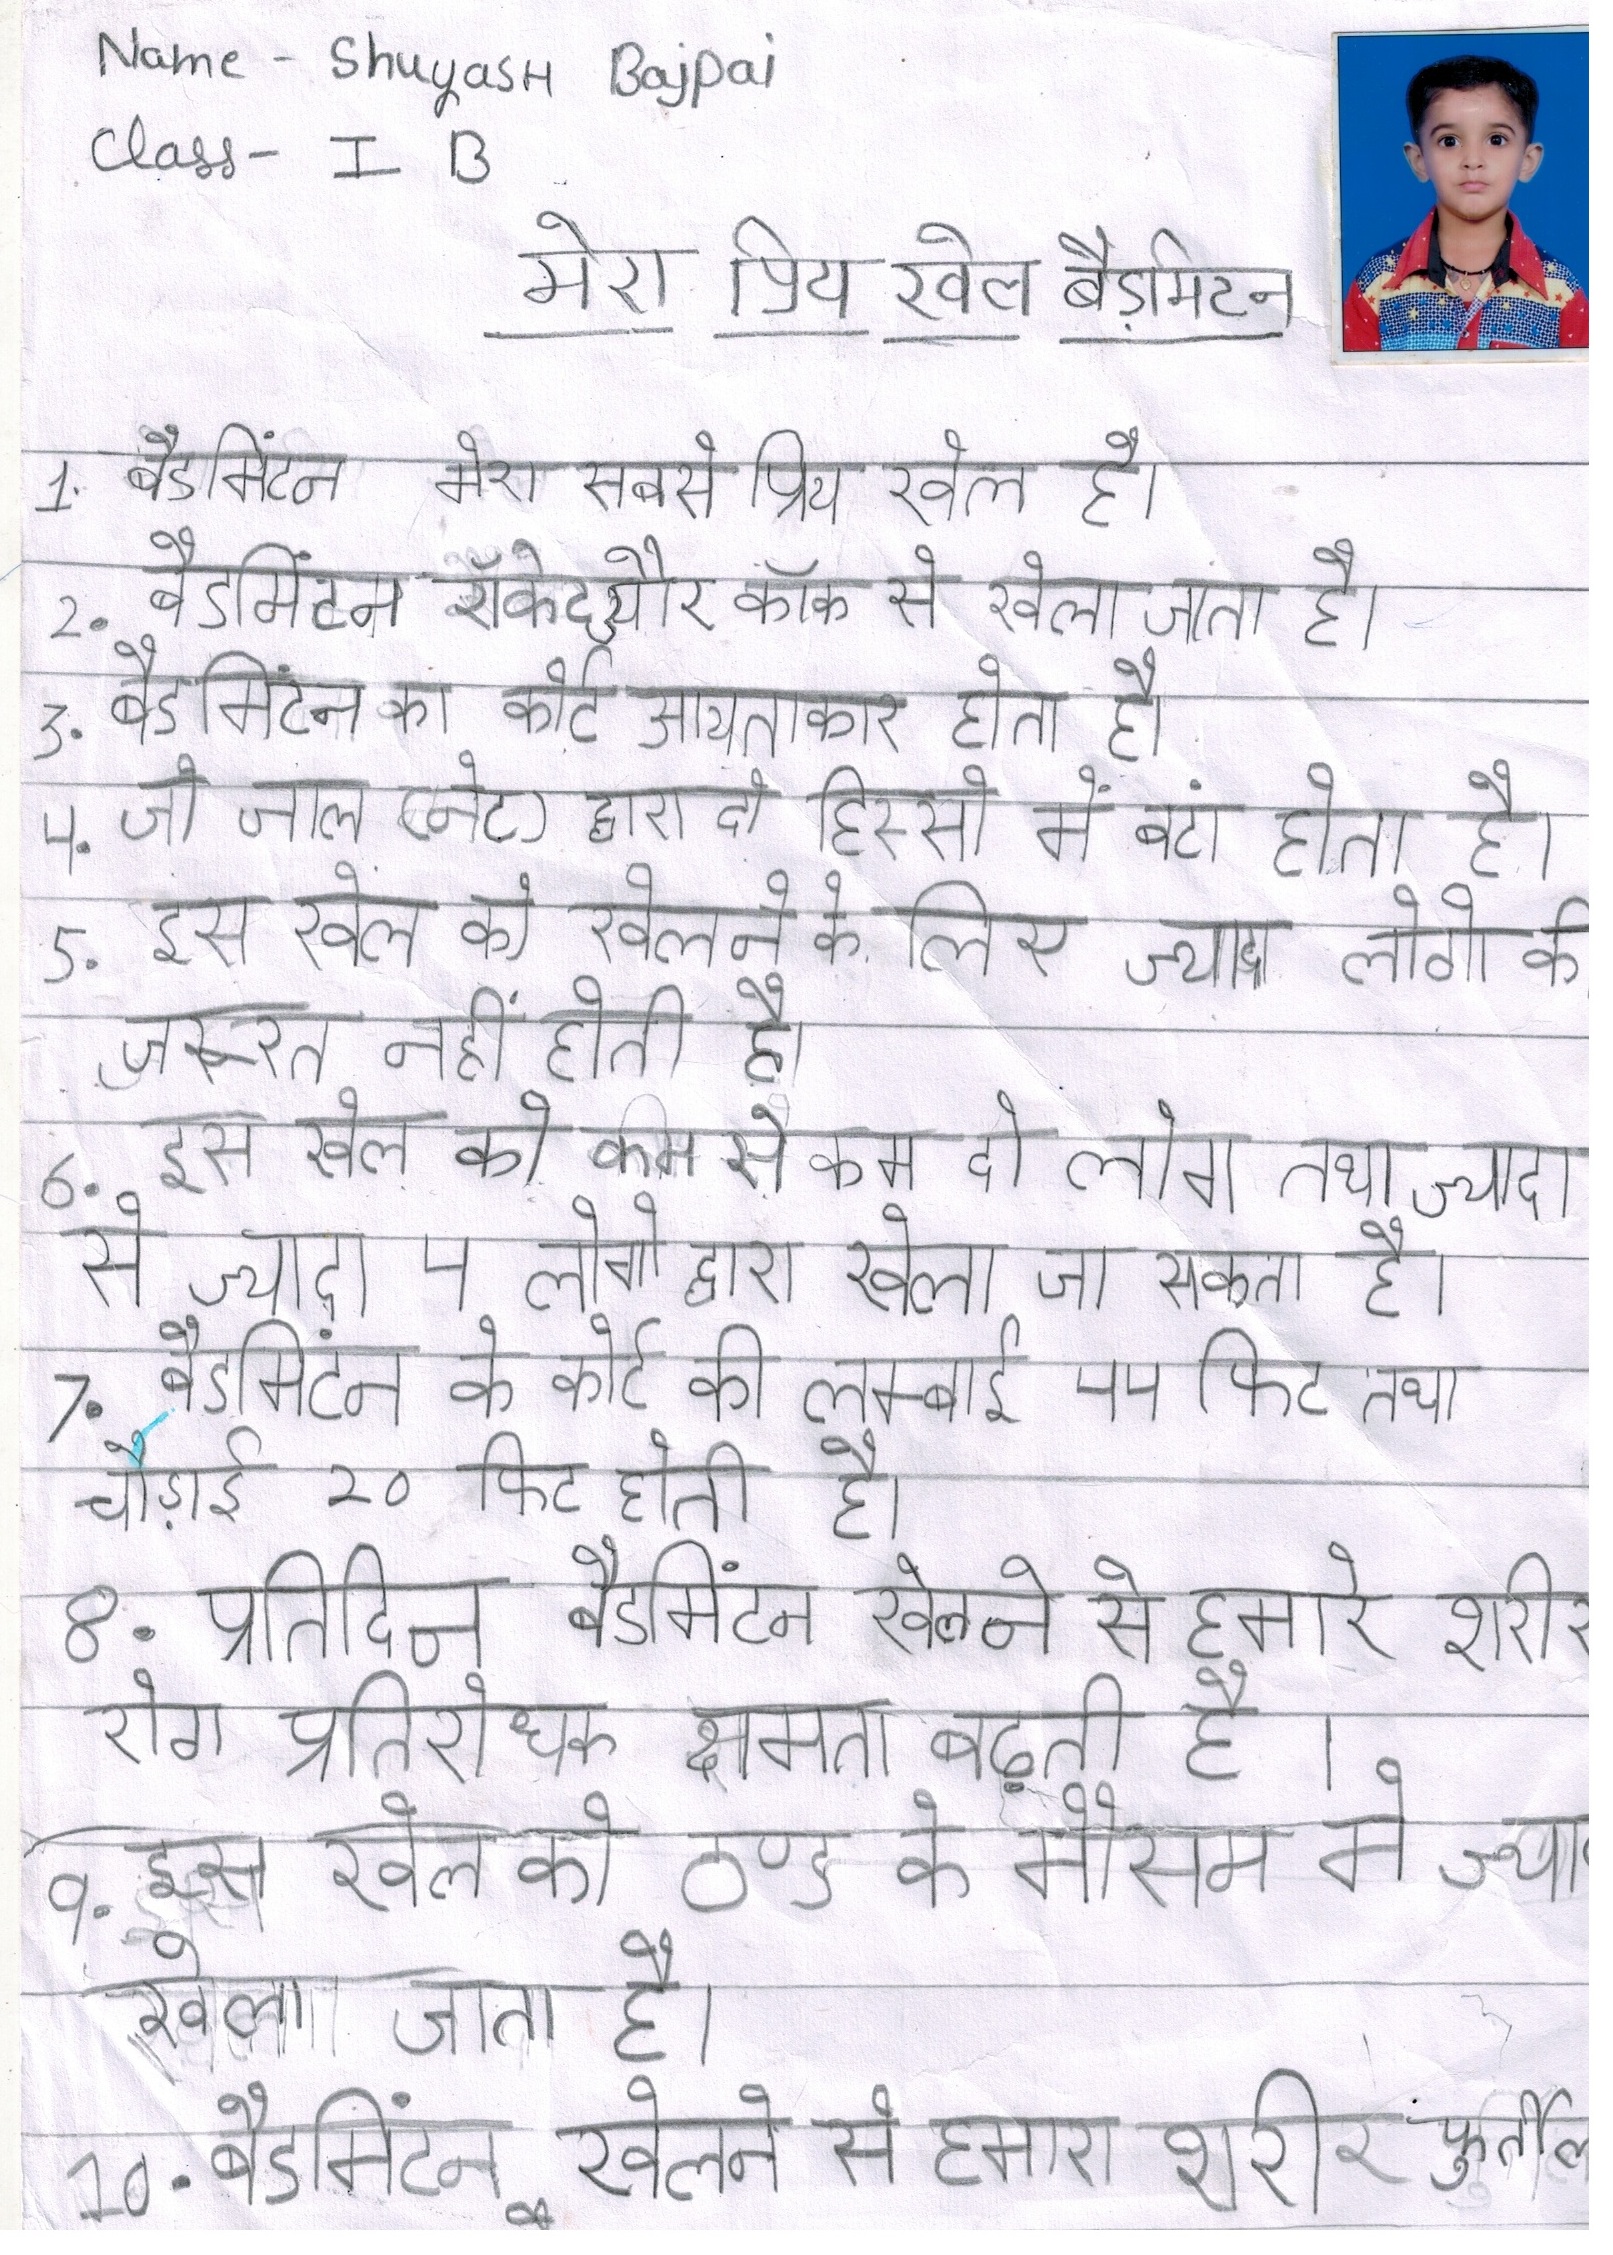 Name - Shuyash Bajpai
Class - I B
मेरा प्रिय खेल बैड़मिटन
1. बैडमिंटन मेरा सबसे प्रिय खेल है।
2. बैडमिंटन रॉकेट और कॉक से खेला जाता है।
3. बैडमिंटन का कोर्ट आयताकार होता है।
4. जो जाल (नेट) द्वारा दो हिस्सो में बटां होता है।
5. इस खेल को खेलने के लिए ज्यादा लोगो की
जरूरत नहीं होती है।
6. इस खेल को कम से कम दो लोग तथा ज्यादा
से ज्यादा 4 लोगो द्वारा खेला जा सकता है।
7. बैडमिंटन के कोर्ट की लम्बाई 44 फिट तथा
चौड़ाई 20 फिट होती है।
8. प्रतिदिन बैडमिंटन खेलने से हमारे शरीर
रोग प्रतिरोधक क्षमता बढ़ती है ।
9. इस खेल को ठण्ड के मौसम मे
खेला जाता है।
10. बैडमिंटन खेलने से हमारा शरीर